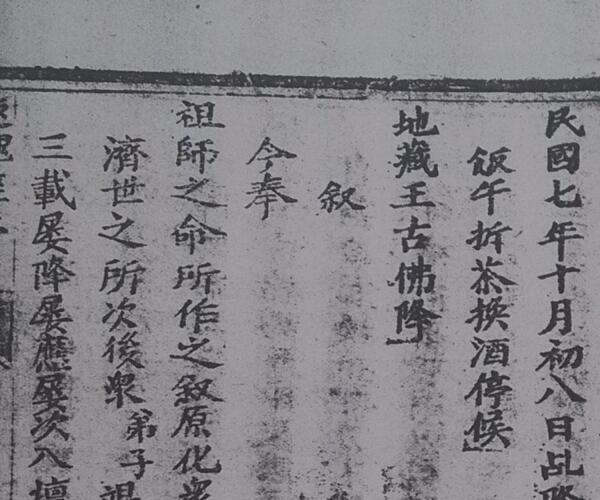 民國七年十月初八日乩降
飯午折茶換酒停候
地藏王古佛降
叙
今奉
祖師之命所作之叙原化
濟世之所次後衆弟子
三載屡降屡應屡次入壇